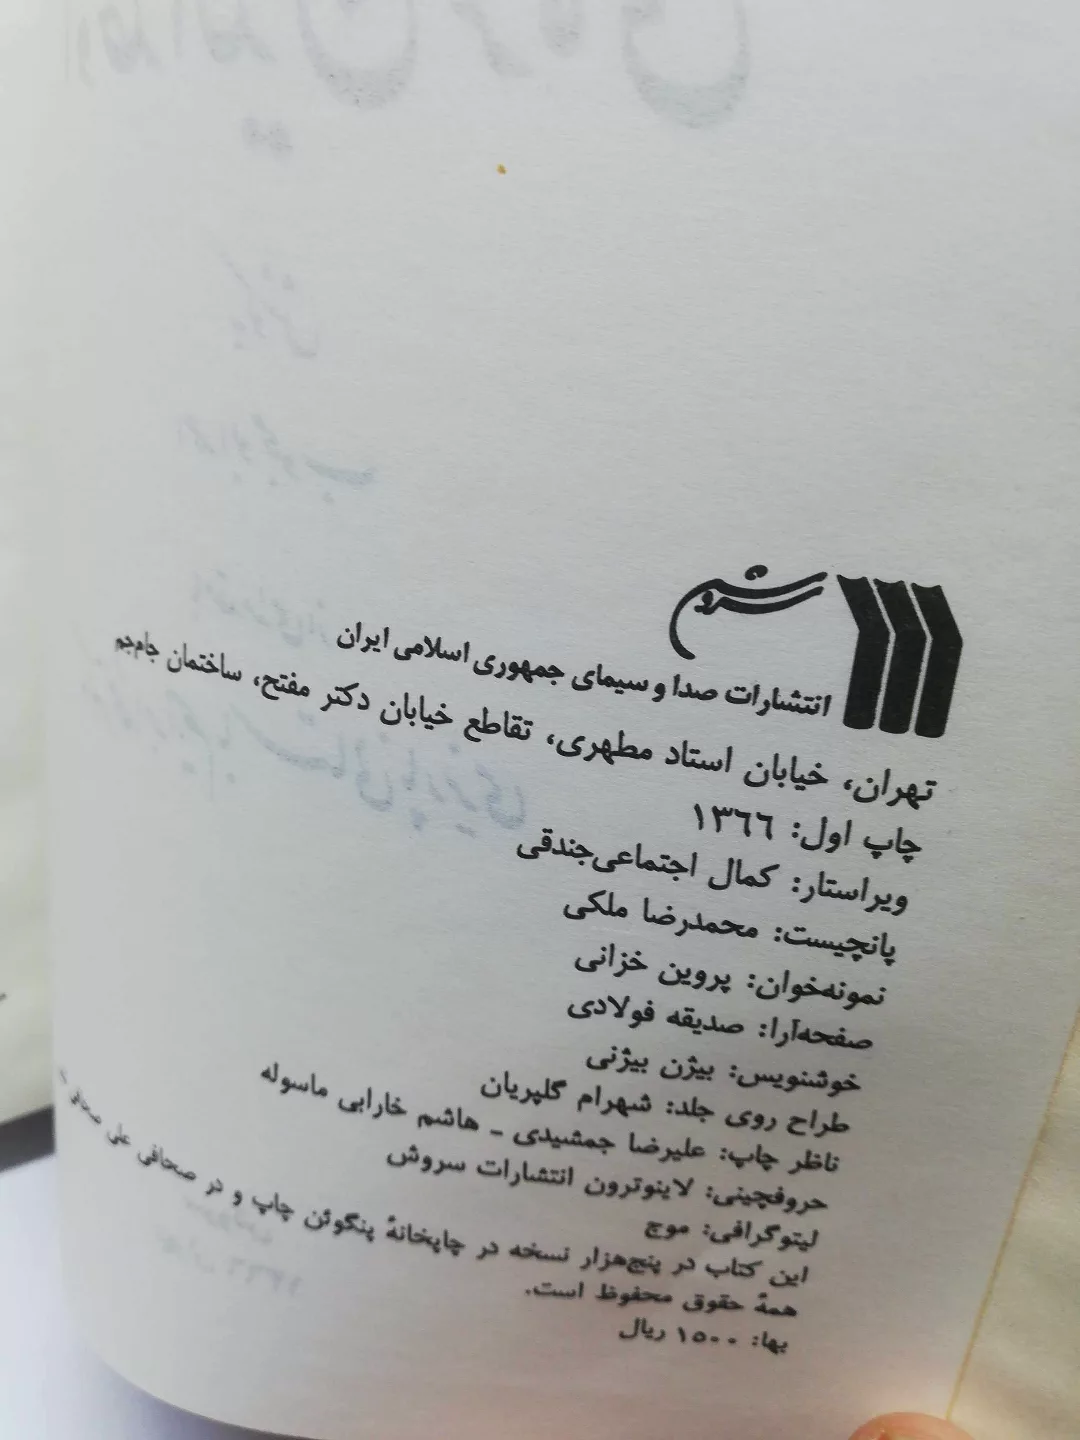 سروش
انتشارات صدا و سیمای جمهوری اسلامی ایران
تهران، خیابان استاد مطهری، تقاطع خیابان دکتر مفتح، ساختمان جام‌جم
چاپ اول: ۱۳۶۶
ویراستار: کمال اجتماعی‌جندقی
پانچیست: محمدرضا ملکی
نمونه‌خوان: پروین خزانی
صفحه‌آرا: صدیقه فولادی
خوشنویس: بیژن بیژنی
طراح روی جلد: شهرام گلپریان
ناظر چاپ: علیرضا جمشیدی ـ هاشم خارابی ماسوله
حروفچینی: لاینوترون انتشارات سروش
لیتوگرافی: موج
این کتاب در پنج‌هزار نسخه در چاپخانهٔ پنگوئن چاپ و در صحافی علی
همهٔ حقوق محفوظ است.
بها: ۱۵۰۰ ریال